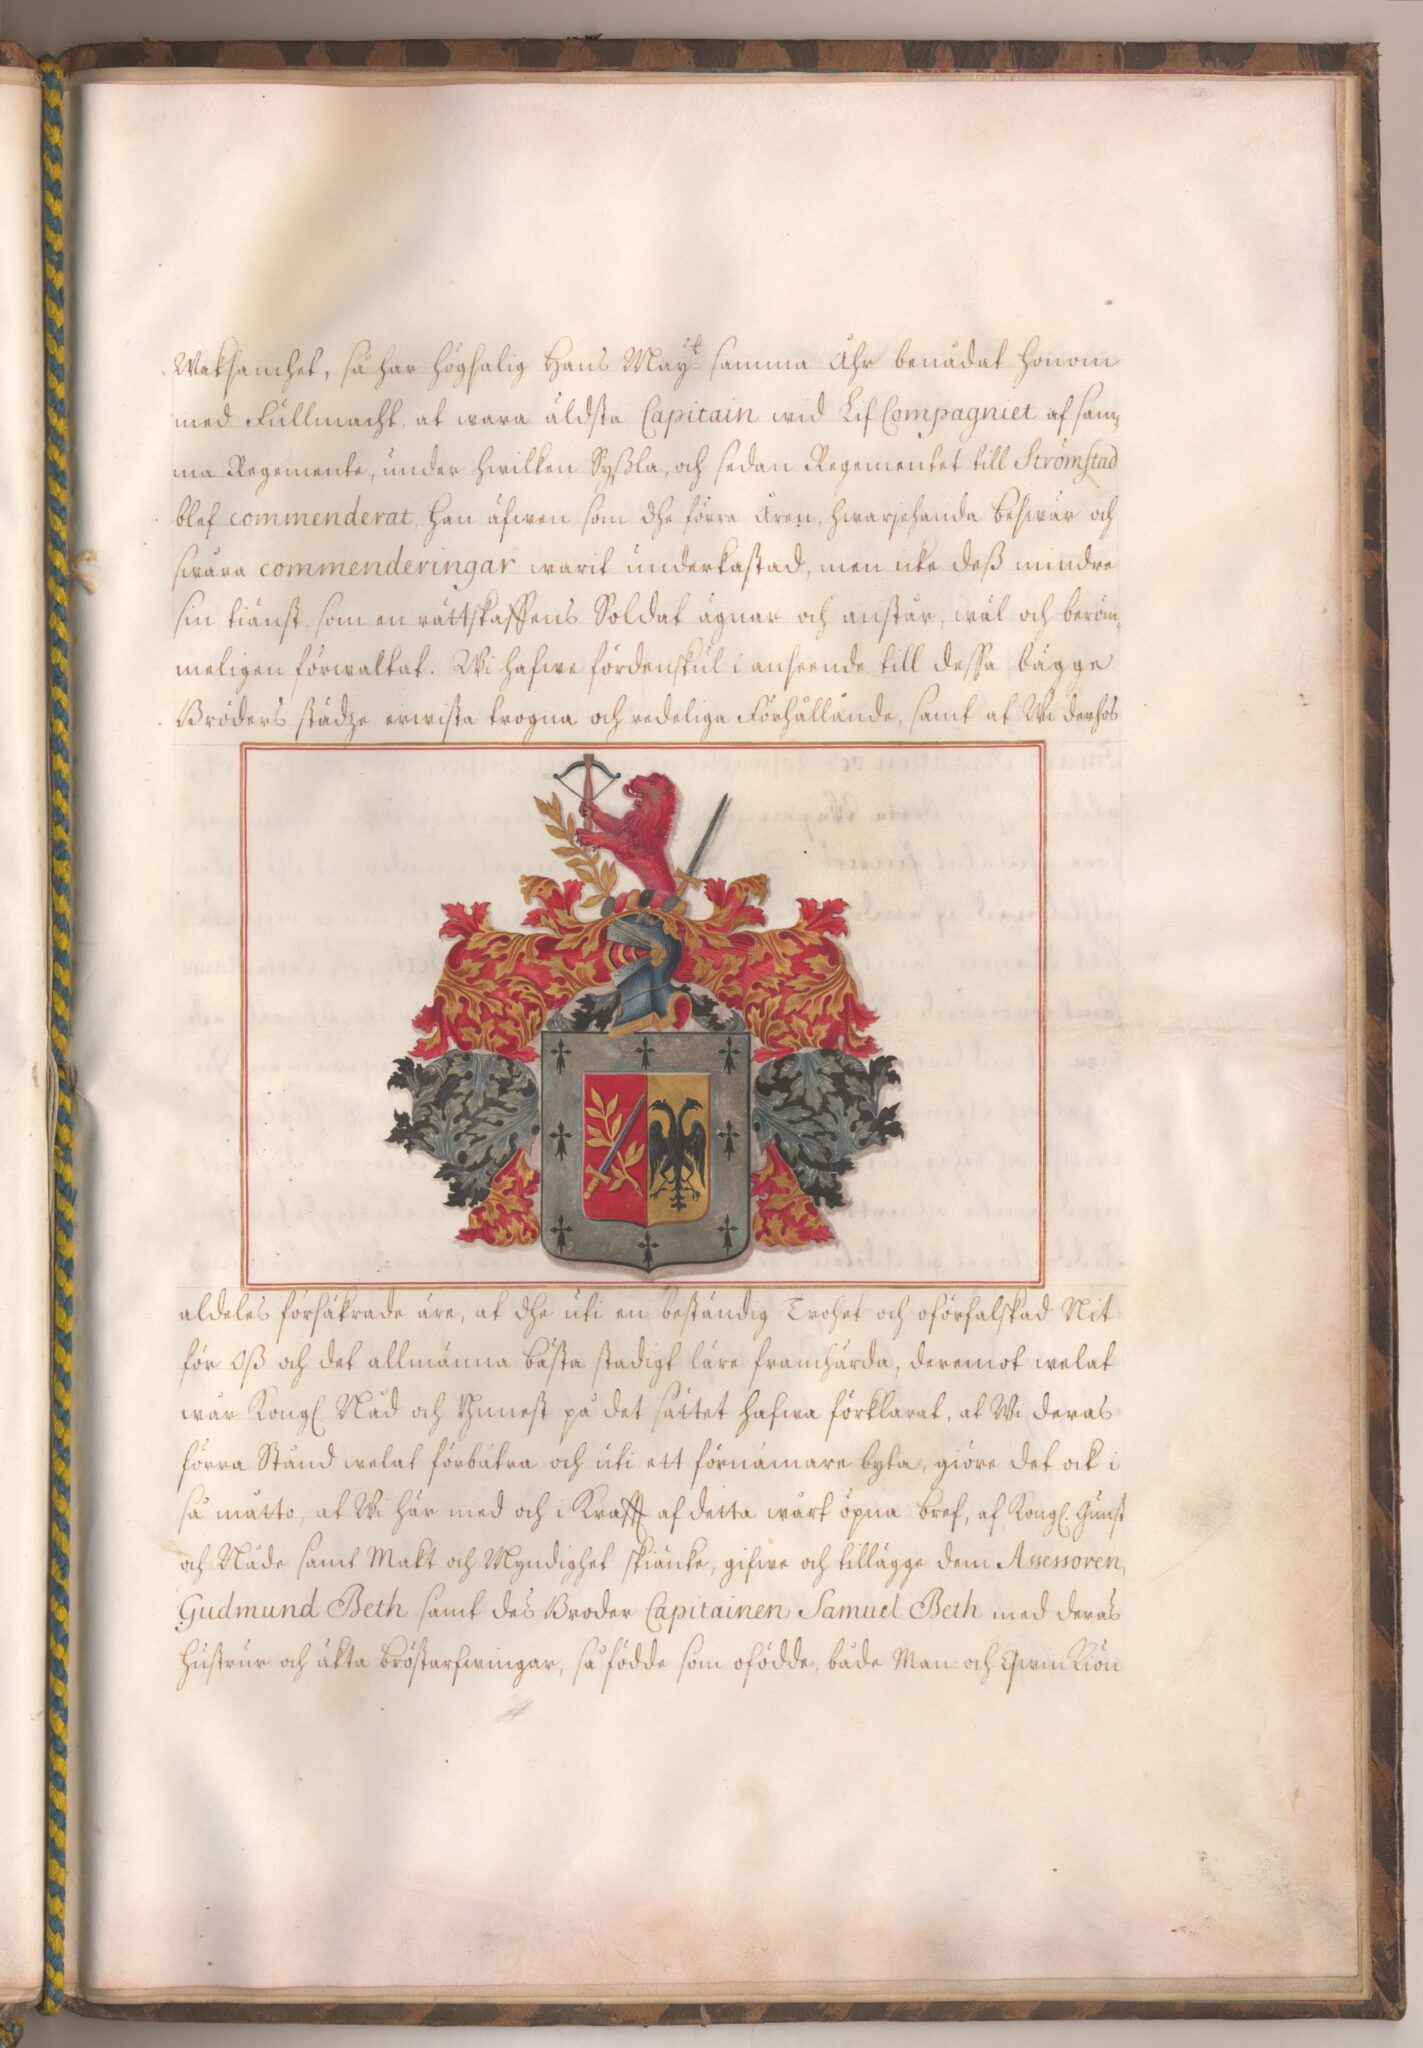 Waksamhet, så har högsalig Hans May:tt samma Åhr benådat honom
med Fullmacht at wara äldsta Capitain wid Lif Compagniet af sam-
ma Regemente, under hwilken Syßla, och sedan Regementet till Strömstad
blef commenderat, han äfwen som dhe förra Åren, hwarjehanda beswär och
swåra commenderingar warit underkastad, men icke deß mindre
sin tiänst, som en rättskaffens Soldat ägnar och anstår, wäl och beröm-
meligen förwaltat. Wi hafwe fördenskul i anseende till dessa bägge
Bröders städze erwista trogna och redeliga Förhållande, samt at Wi derhos
aldeles försäkrade äre, at dhe uti en beständig Trohet och oförfalskad Nit
för Oß och det allmänna bästa stadigt läre framhärda, deremot welat
wår Kongl. Nåd och Ynnest på det sättet hafwa förklarat, at Wi deras
förra Stånd welat förbättra och uti ett förnämare byta, giöre det ock i
så måtto, at Wi här med och i Krafft af detta wårt öpna bref, af Kongl. Gunst
och Nåde samt Makt och Myndighet skiänke, gifwe och tillägge dem Assessoren,
Gudmund Beth samt des Broder Capitainen Samuel Beth med deras
Hustrur och äkta bröstarfwingar, så födde som ofödde, både Man- och Qwin Kiön